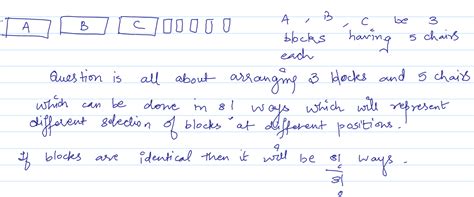 A B C A, B, C be 3
blocks having 5 chairs
each
Question is all about arranging 3 blocks and 5 chairs
which can be done in 8! ways which will represent
different selection of blocks at different positions.
If blocks are identical then it will be 8!/3! ways.